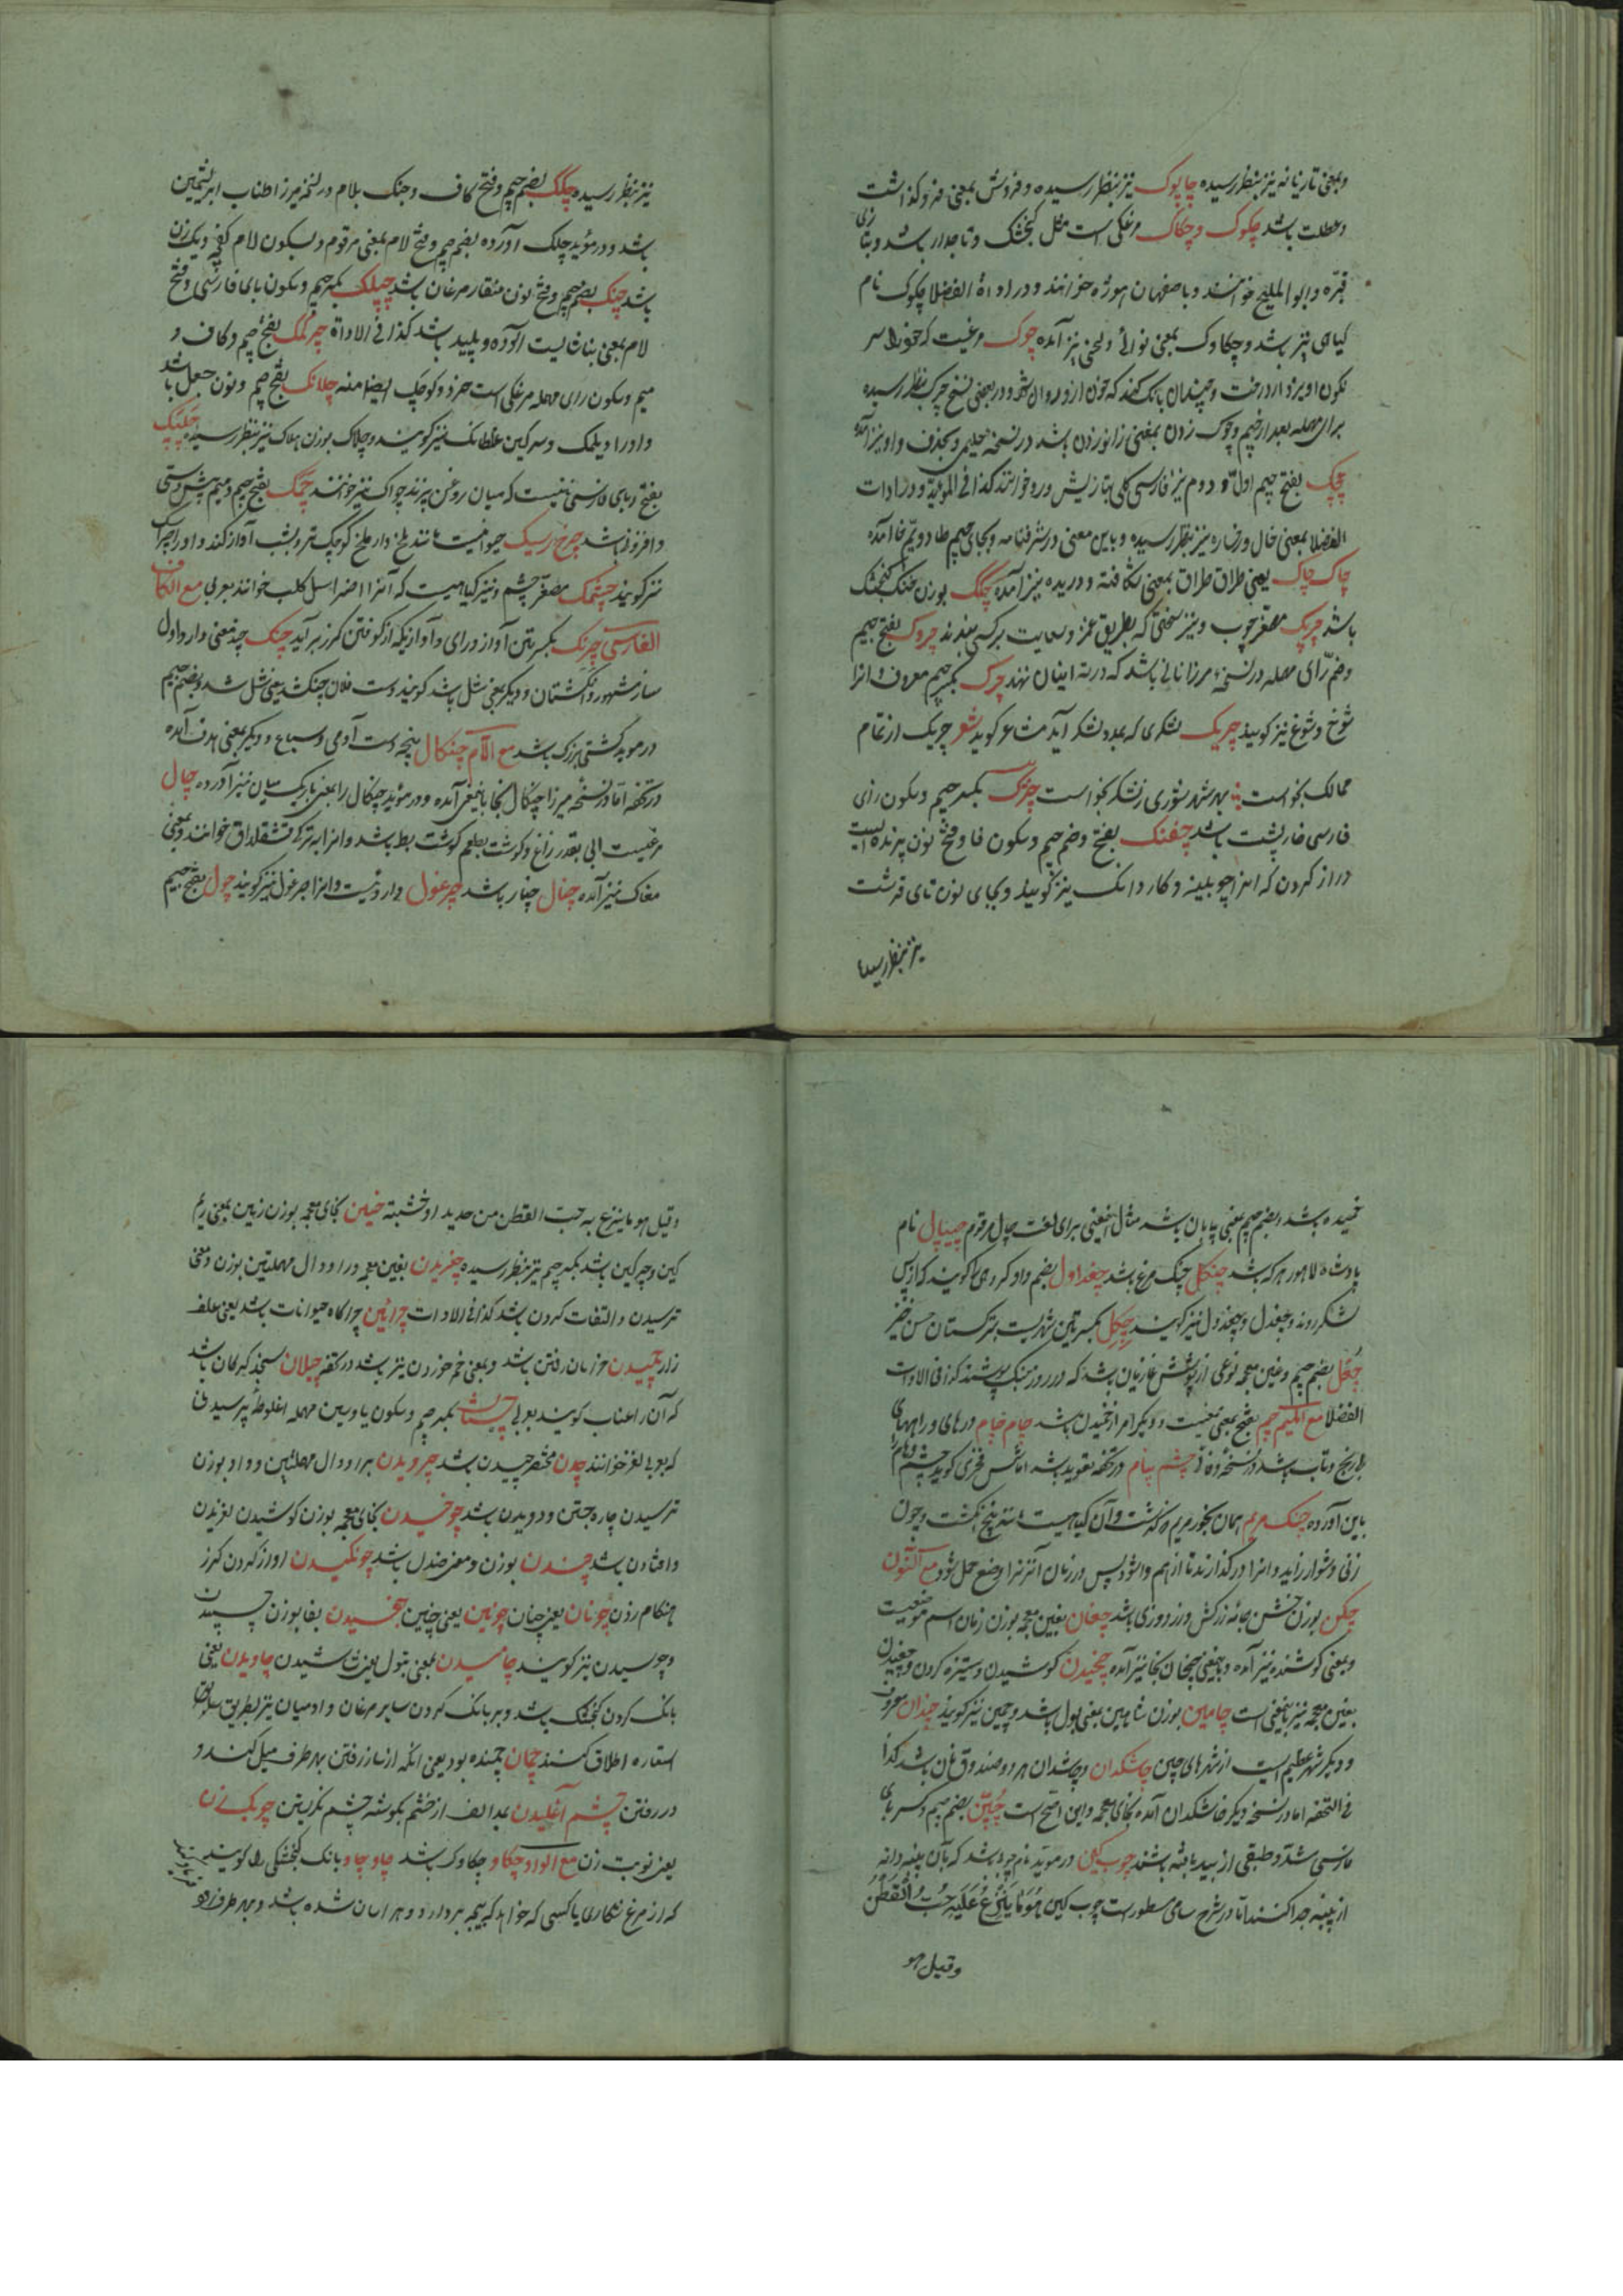 وبمعنی تازیانه نیز بنظر رسیده چاپوک نیز بنظر رسیده و فروش بمعنی فرو کذاشت
وعطلت باشد چکوک و چکاک مرغکی است مثل کنجشک و تاجدار باشد و بتازی
قبّره و ابو الملیح خوانند و باصفهان هوژه خوانند و در اداة الفضلا چکوک نام
کیاهی نیز باشد و چکاوک بمعنی نوائی و لحنی نیز آمده چوک مرغیست که خود را سر
نکون اویزد از درخت و چندان بانک کند که خون ازو روان شود و در بعضی نسخ چرک بنظر رسیده
برای مهمله بعد از جیم و چوک زدن بمعنی زانو زدن باشد در نسخه حلیمی و بحذف واو نیز آمده
چچک بفتح جیم اول و دوم نیز فارسی کلی بتازیش ورد خوانند کذا فی المؤید و در ادات
الفضلا بمعنی خال و رخساره نیز بنظر رسیده و باین معنی در شرفنامه و بجای جیم طا دویم خا آمده
چاک چاک یعنی طراق طراق بمعنی شکافته و دریده نیز آمده چمک بوزن خنک کنجشک
باشد چوبک مصغر چوب و نیز سختی که بطریق غمز و سعایت بر کسی بندند چروک بفتح جیم
وضم رای مهمله در نسخه میرزا نانی باشد که در ته انبان نهند چرک بکسر جیم معروف و انرا
شوخ و شوغ نیز کویند چریک لشکری که بمدد لشکر آید شاعر کوید شعر چریک از تمام
ممالک بخواست بهر شهر شوری ز لشکر بخواست چزک بکسر جیم و سکون زای
فارسی خارپشت باشد چفنک بفتح و ضم جیم و سکون فا و فتح نون پرنده ایست
دراز کردن که انرا چوبینه و کاردانک نیز کویند و بجای نون تای قرشت
نیز بنظر رسیده
نیز بنظر رسیده چکک بضم جیم و فتح کاف و چنک بلام در نسخه میرزا طناب ابریشمین
باشد و در مؤید چلک آورده بضم جیم و فتح لام بمعنی مرقوم و بسکون لام کفچه و یک زن
باشد چنک بضم جیم و فتح نون منقار مرغان باشد چپلک بکسر جیم و سکون بای فارسی و فتح
لام بمعنی بناشایست آلوده و پلید باشد کذا فی الاداة چرکمک بفتح جیم و کاف و
میم و سکون رای مهمله مرغکی است خرد و کوچک ایضا منه چلانک بفتح جیم و نون جعل باشد
و اورا دیلمک و سرکین غلطانک نیز کویند و چلاک بوزن هلاک نیز بنظر رسیده چلپک
بفتح و بای فارسی نانیست که میان روغن پزند چواک نیز خوانند چمک بفتح جیم و میم پیش دستی
و افزونی باشد چرخ ریسک حیوانیست مانند ملخ دار ملخ کوچک تر و بشب آواز کند و اورا چزک
نیز کویند چشمک مصغر چشم و نیز کیاهیست که آنرا اضراس الکلب خوانند بعربی مع الکاف
الفارسی چرنک بکسرتین آواز درای و آوازیکه از کوفتن کرز برآید چنک چند معنی دارد اول
ساز مشهور و انکشتان و دیکر بمعنی شل باشد کویند دست فلان چنک شد یعنی شل شد و بضم جیم
در مؤید کشتی بزرک باشد مع اللام چنکال پنجه دست آدمی و سباع و دیکر بمعنی هدف آمده
در تحفه اما در نسخه میرزا چنکال بخا باینمعنی آمده و در مؤید چنکال را بمعنی باریک میان نیز آورده چال
مرغیست ابی بقدر زاغ و کوشت بطعم کوشت بط باشد و انرا به ترکی قشقلداق خوانند و بمعنی
مغاک نیز آمده چنال چنار باشد چرغول داروئیست و انرا جرغول نیز کویند چول بفتح جیم
خمیده باشد و بضم جیم بمعنی بیابان باشد مثال اینمعنی برای لغت چال مرقوم چیپال نام
پادشاه لاهور هر که باشد چنکل چنک مرغ باشد چغداول بضم واو کروهی را کویند که از پس
لشکر روند و چغدل و چغدول نیز کویند چکل بکسرتین شهریست بترکستان حسن خیز
چغل بضم جیم و غین معجمه نوعی از پوشش غازیان باشد که در روز جنک پوشند کذا فی الادات
الفضلا مع المیم چم بفتح بمعنی معنیست و دیکر امر از خمیدن باشد چام چام درهای و راههای
با پیچ و تاب باشد در نسخه وفائی چشم پنام در تحفه تعویذ باشد اما شمس فخری کوید چشم و هام
باین آورده چنک مریم همان بخور مریم که کذشت و آن کیاهیست مانند پنج انکشت و چون
زنی دشوار زاید و انرا در کذارند تا از هم وا شود پس در زمان آنزنرا وضع حمل شود مع النون
چکن بوزن ختن جامه زرکش و زردوزی باشد چغان بغین معجمه بوزن زمان اسم موضعیست
و بمعنی کوشنده نیز آمده و باینمعنی چخان بخا نیز آمده چخیدن کوشیدن و ستیزه کردن و چغیدن
بغین معجمه نیز باینمعنی است چامین بوزن شاهین بمعنی بول باشد و چمین نیز کویند چندان معروف
و دیکر شهر عظیم است از شهرهای چین چاشکدان و چاشدان هر دو صندوق نان باشد کذا
فی التحفه اما در نسخه دیکر خاشکدان آمده بخای معجمه و این اصح است چپین بضم جیم و کسر بای
فارسی مشدد طبقی از بید بافته باشند چوب کین در مؤید نام چوبی باشد که بآن پنبه دانه
از پنبه جدا کنند اما در شرح سامی مسطور است چوب کین هُوَ مَا یَنْزِعُ عَلَیْهِ حَبُّ الْقُطْنِ
وقیل هو
وقیل هو ما ینزع به حب القطن من حدید او خشبة خین بخای معجمه بوزن زین بمعنی ریم
کین و چرکین باشد بکسر جیم نیز بنظر رسیده چغریدن بغین معجمه و را و دال مهملتین بوزن و معنی
ترسیدن و التفات کردن باشد کذا فی الادات چرائین چراکاه حیوانات باشد یعنی علف
زار چمیدن خرامان رفتن باشد و بمعنی خم خوردن نیز باشد در تحفه چیلان سنجد کیلان باشد
که آن را عناب کویند بعربی چیستان بکسر جیم و سکون یا و سین مهمله اغلوطه پرسیدن
که بعربی لغز خوانند چدن مختصر چیدن باشد چرویدن برا و دال مهملتین و واو بوزن
ترسیدن چاره جستن و دویدن باشد چوخیدن بخای معجمه بوزن کوشیدن لغزیدن
و افتادن باشد چندن بوزن و معنی صندل باشد چرنکیدن آواز کردن کرز
هنکام زدن چونان یعنی چنان چونین یعنی چنین چفسیدن بفا بوزن چسپیدن
و چوسیدن نیز کویند چامیدن بمعنی بتول یعنی شاشیدن چاویدن یعنی
بانک کردن کنجشک باشد و بر بانک کردن سایر مرغان و ادمیان نیز بطریق
استعاره اطلاق کنند چمان چمنده بود یعنی انکه از ناز رفتن بهر طرف میل کند و
در رفتن چشم آغیلیدن بمد الف از خشم بکوشه چشم نکریستن چوبک زن
یعنی نوبت زن مع الواو چکاو چکاوک باشد چاو چاو بانک کنجشکی را کویند
که از مرغ شکاری یا کسی که خواهد که بیجه بردارد و هراسان شده باشد و بهر طرف رود